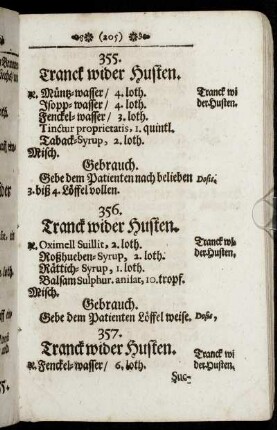 (205)
355.
Tranck wider Husten.
℞. Müntz-wasser / 4. loth. Tranck wi
Isopp-wasser / 4. loth. der Husten.
Fenckel-wasser / 3. loth.
Tinctur proprietatis, 1. quintl.
Taback-Syrup, 2. loth.
Misch.
Gebrauch.
Gebe dem Patienten nach belieben Dosis,
3. biß 4. Löffel vollen.
356.
Tranck wider Husten.
℞. Oximell Suillit, 2. loth. Tranck wi-
Roßhueben-Syrup, 2. loth. der Husten,
Rättich-Syrup, 1. loth.
Balsam Sulphur. anisat, 10. tropf.
Misch.
Gebrauch.
Gebe dem Patienten Löffel weise. Dosis,
357.
Tranck wider Husten. Tranck wi
℞. Fenckel-wasser / 6. loth. der Husten.